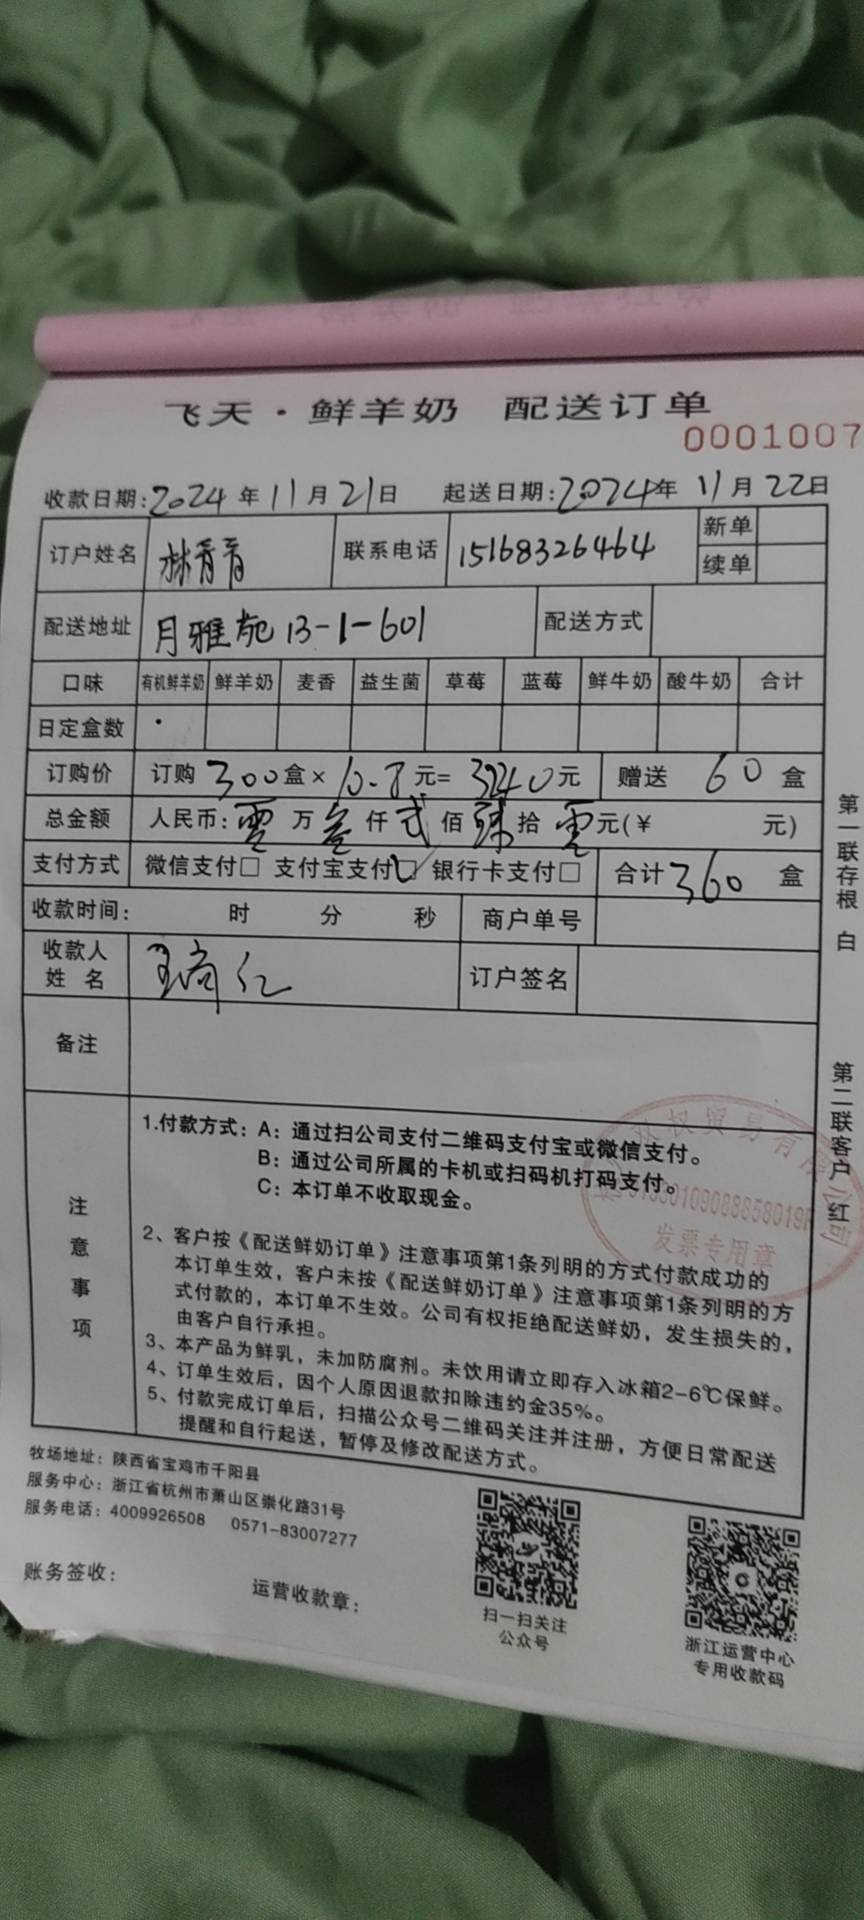 飞天·鲜羊奶 配送订单
0001007
收款日期:2024年11月21日 起送日期:2024年11月22日
订户姓名 林青青 联系电话 15168326464 新单
续单
配送地址 月雅苑13-1-601 配送方式
口味 有机鲜羊奶 鲜羊奶 麦香 益生菌 草莓 蓝莓 鲜牛奶 酸牛奶 合计
日定盒数
订购价 订购 300盒×10.8元=3240元 赠送 60盒
总金额 人民币:零万叁仟贰佰肆拾零元(¥ 元)
支付方式 微信支付□ 支付宝支付☑ 银行卡支付□ 合计360盒
收款时间: 时 分 秒 商户单号
收款人
姓 名 订户签名
备注
注意事项
1.付款方式: A: 通过扫公司支付二维码支付宝或微信支付。
B: 通过公司所属的卡机或扫码机打码支付。
C: 本订单不收取现金。
2、客户按《配送鲜奶订单》注意事项第1条列明的方式付款成功的
本订单生效，客户未按《配送鲜奶订单》注意事项第1条列明的方
式付款的，本订单不生效。公司有权拒绝配送鲜奶，发生损失的，
由客户自行承担。
3、本产品为鲜乳，未加防腐剂。未饮用请立即存入冰箱2-6℃保鲜。
4、订单生效后，因个人原因退款扣除违约金35%。
5、付款完成订单后，扫描公众号二维码关注并注册，方便日常配送
提醒和自行起送，暂停及修改配送方式。
第一联存根 白
第二联客户 红
权贸易有限公司
发票专用章
牧场地址: 陕西省宝鸡市千阳县
服务中心: 浙江省杭州市萧山区崇化路31号
服务电话: 4009926508 0571-83007277
账务签收: 运营收款章:
扫一扫关注
公众号
浙江运营中心
专用收款码